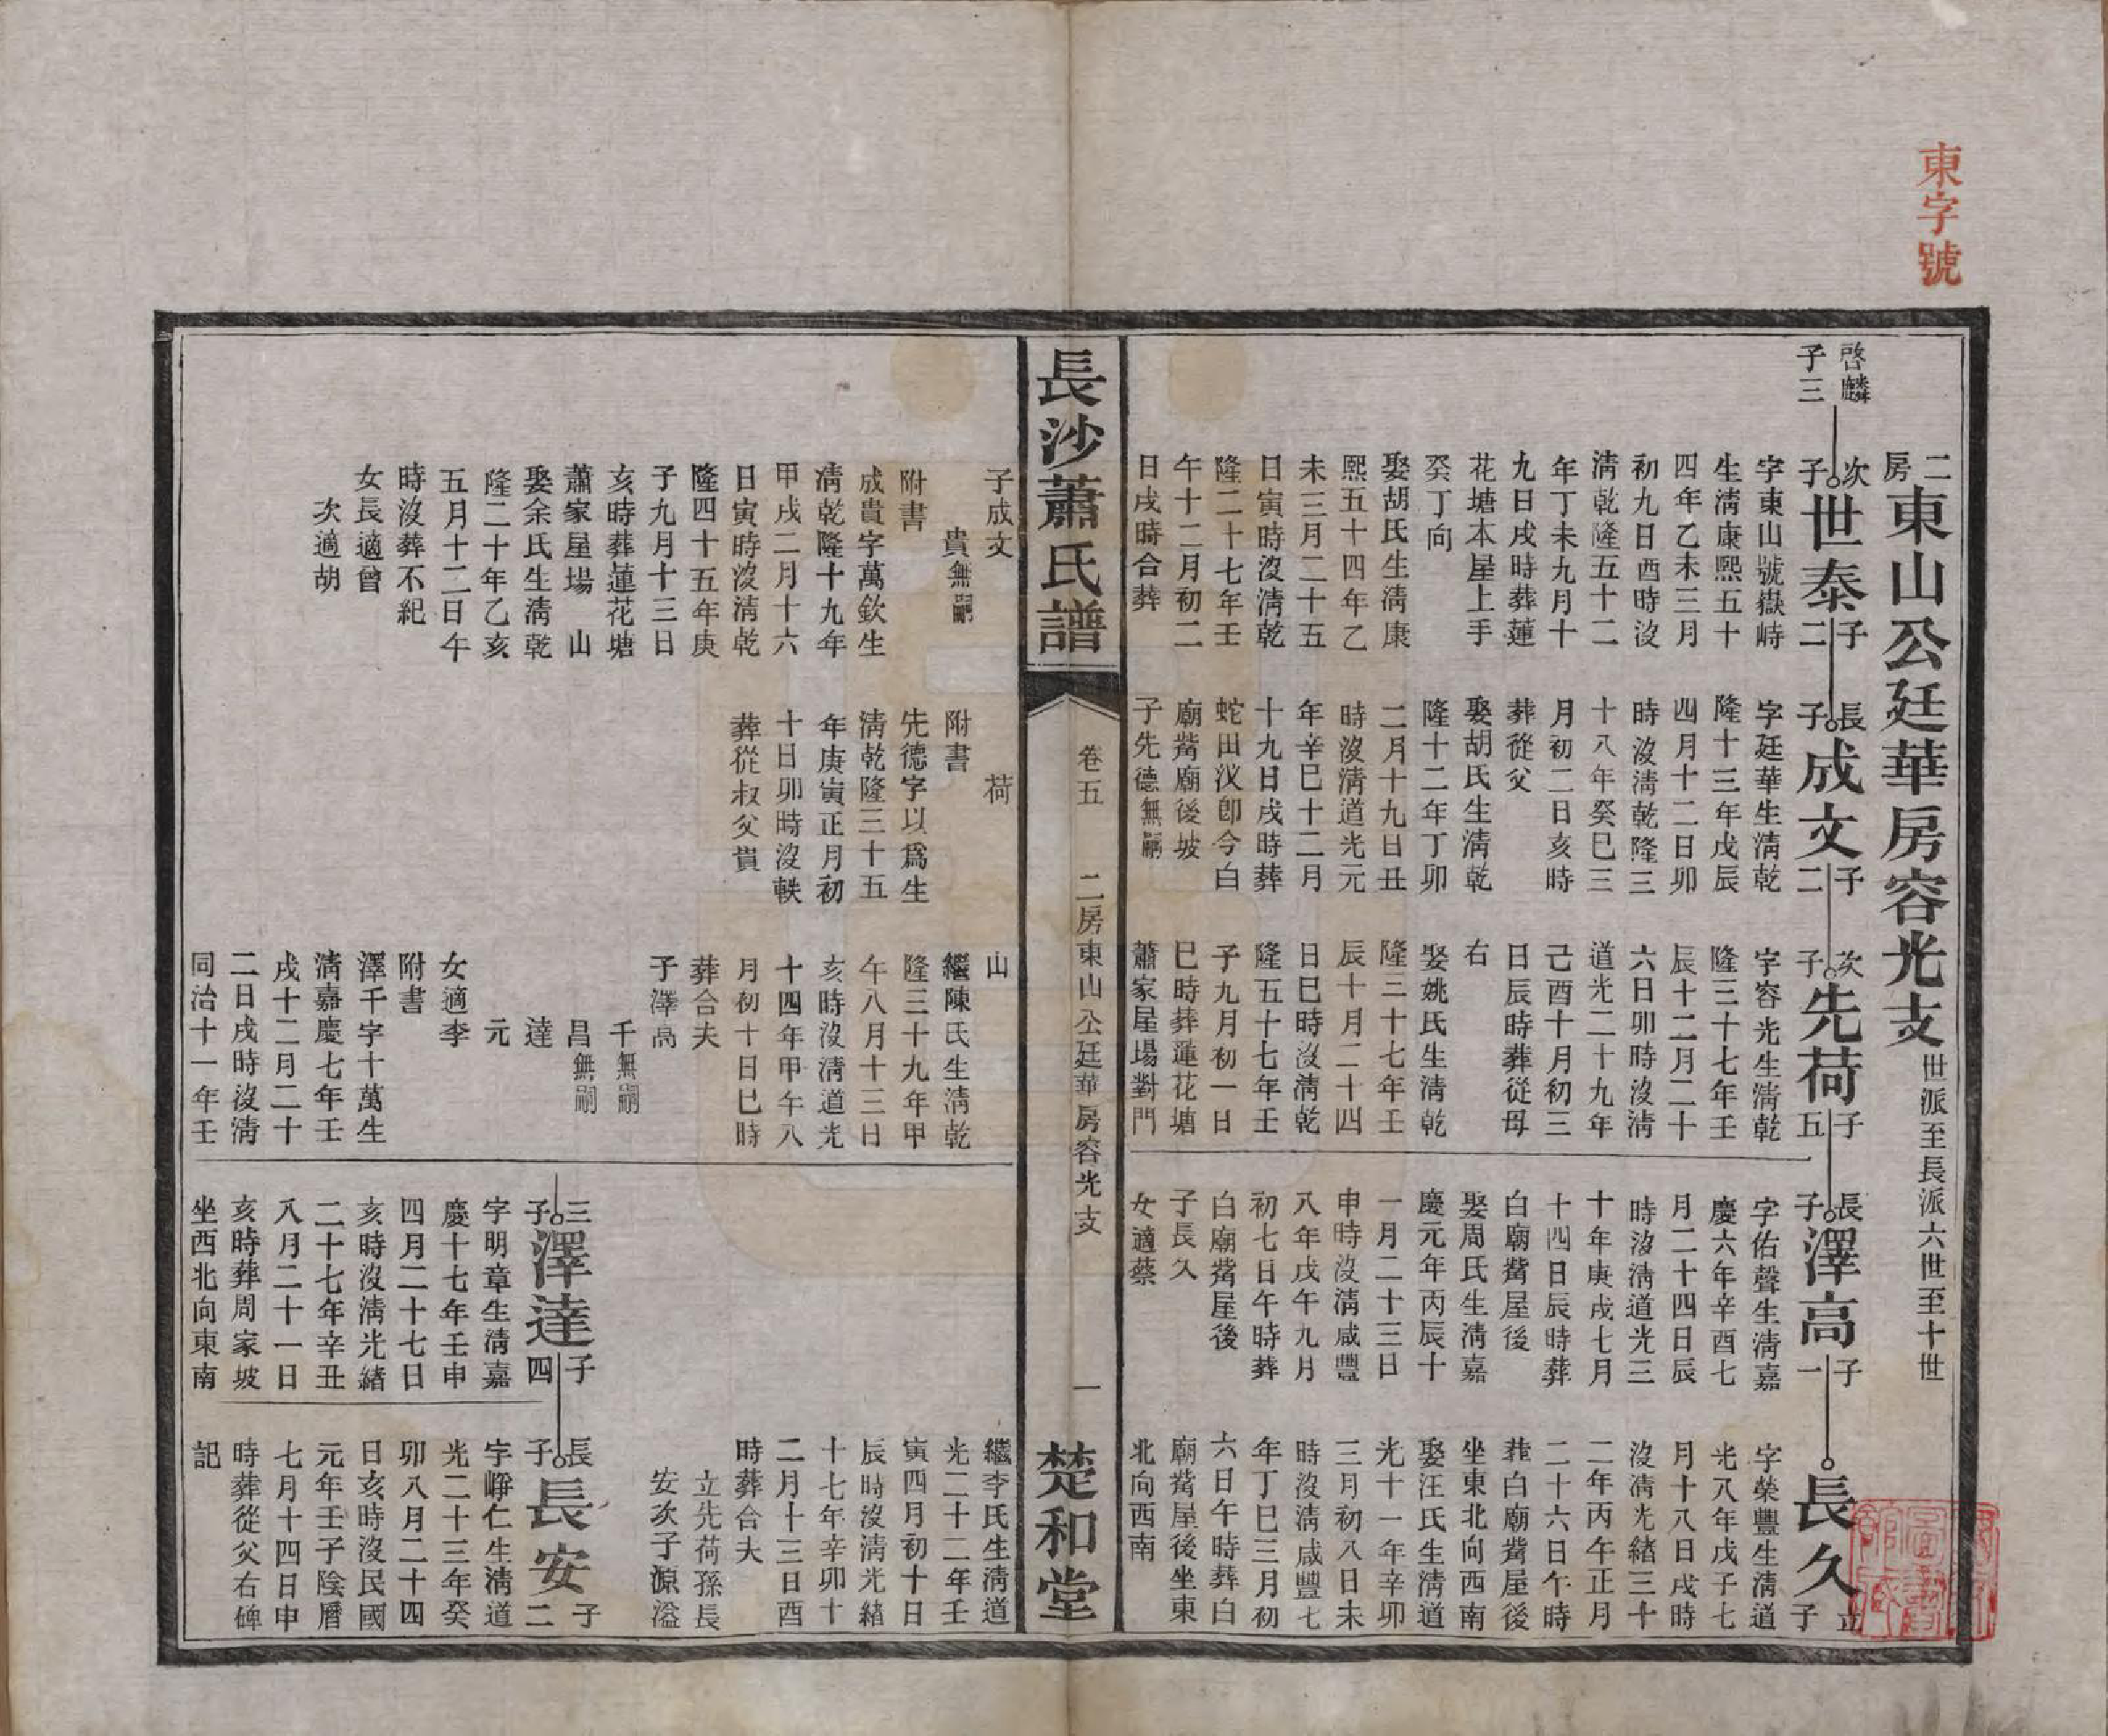 東字號
二房東山公廷華房容光支世派至長派六世至十世
啓麟子三
次子世泰子二
字東山號嶽峙
生清康熙五十
四年乙未三月
初九日酉時沒
清乾隆五十二
年丁未九月十
九日戌時葬蓮
花塘本屋上手
癸丁向
娶胡氏生清康
熙五十四年乙
未三月二十五
日寅時沒清乾
隆二十七年壬
午十二月初二
日戌時合葬
長子成文子二
字廷華生清乾
隆十三年戊辰
四月十二日卯
時沒清乾隆三
十八年癸巳三
月初二日亥時
葬從父
娶胡氏生清乾
隆十二年丁卯
二月十九日丑
時沒清道光元
年辛巳十二月
十九日戌時葬
蛇田汊卽今白
廟觜廟後坡
子先德無嗣
次子先荷子五
字容光生清乾
隆三十七年壬
辰十二月二十
六日卯時沒清
道光二十九年
己酉十月初三
日辰時葬從母
右
娶姚氏生清乾
隆三十七年壬
辰十月二十四
日巳時沒清乾
隆五十七年壬
子九月初一日
巳時葬蓮花塘
蕭家屋場對門
長子澤高子一
字佑聲生清嘉
慶六年辛酉七
月二十四日辰
時沒清道光三
十年庚戌七月
十四日辰時葬
白廟觜屋後
娶周氏生清嘉
慶元年丙辰十
一月二十三日
申時沒清咸豐
八年戊午九月
初七日午時葬
白廟觜屋後
子長久
女適蔡
長久立子
字榮豐生清道
光八年戊子七
月十八日戌時
沒清光緒三十
二年丙午正月
二十六日午時
葬白廟觜屋後
坐東北向西南
娶汪氏生清道
光十一年辛卯
三月初八日未
時沒清咸豐七
年丁巳三月初
六日午時葬白
廟觜屋後坐東
北向西南
長沙蕭氏譜
卷五
二房東山公廷華房容光支
一
楚和堂
子成文
貴無嗣
附書
成貴字萬欽生
清乾隆十九年
甲戌二月十六
日寅時沒清乾
隆四十五年庚
子九月十三日
亥時葬蓮花塘
蕭家屋場 山
娶余氏生清乾
隆二十年乙亥
五月十二日午
時沒葬不紀
女長適曾
次適胡
荷
附書
先德字以爲生
清乾隆三十五
年庚寅正月初
十日卯時沒軼
葬從叔父貴
山
繼陳氏生清乾
隆三十九年甲
午八月十三日
亥時沒清道光
十四年甲午八
月初十日巳時
葬合夫
子澤高
千無嗣
昌無嗣
達
元
女適李
附書
澤千字十萬生
清嘉慶七年壬
戌十二月二十
二日戌時沒清
同治十一年壬
三子澤達子四
字明章生清嘉
慶十七年壬申
四月二十七日
亥時沒清光緒
二十七年辛丑
八月二十一日
亥時葬周家坡
坐西北向東南
繼李氏生清道
光二十二年壬
寅四月初十日
辰時沒清光緒
十七年辛卯十
二月十三日酉
時葬合夫
立先荷孫長
安次子源溢
長子長安子二
字崢仁生清道
光二十三年癸
卯八月二十四
日亥時沒民國
元年壬子陰曆
七月十四日申
時葬從父右碑
記